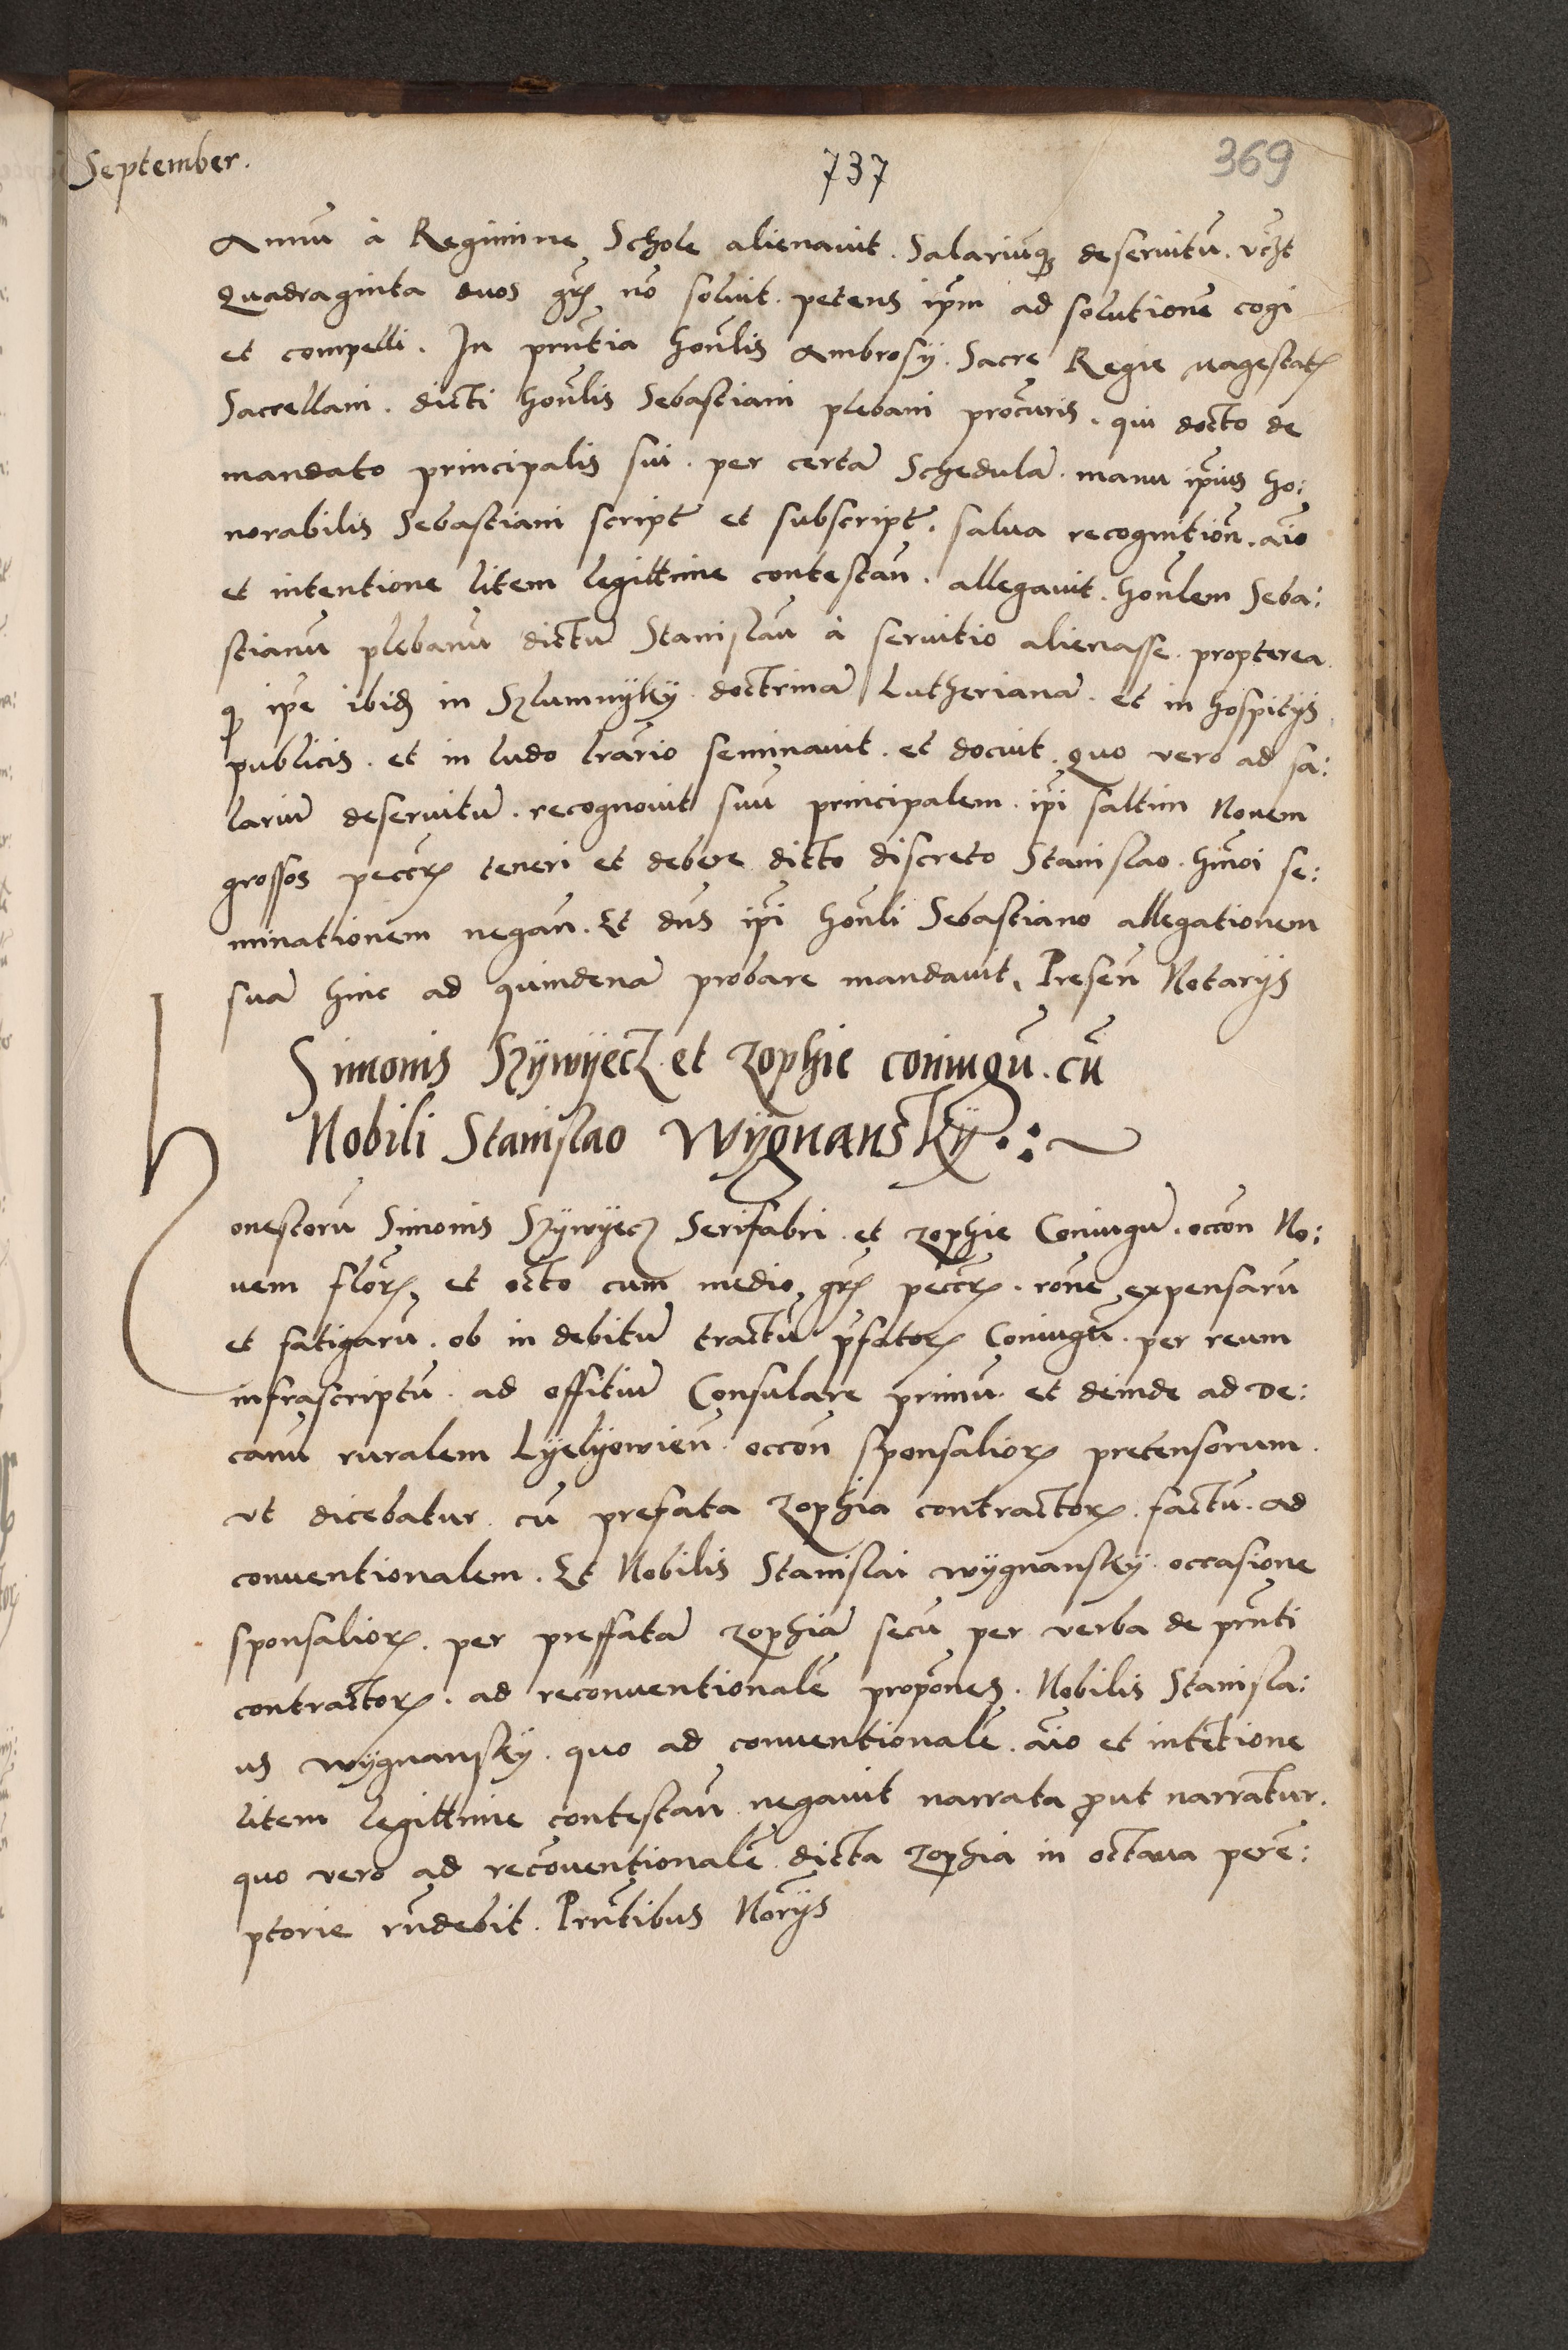 September.
737
369
Annũ à Regimine Schole alienavit. Salariũqȝ deservitũ. vꝫt
Quadraginta duos grꝭ nõ solvit. petens ip̃m ad solutionẽ cogi
et compelli. In prñtia hoñlis Ambrosÿ. Sacre Regie magestatꝭ
Sacellani. dicti hoñlis Sebastiani plebani procũris. qui docto de
mandato principalis sui. per certã Schedulã. manu ip̃ius ho:
norabilis Sebastiani script̃ et subscript̃. salva recognitioñ. aĩo
et intentione litem legittime contestañ. allegavit. hoñlem Seba:
stianũ plebanũ dictũ Stanislaũ à servitio alienasse. propterea
ꝙ ip̃e ibid̃ in Szlumnÿkÿ doctrinã Lutherianã. et in hospitÿs
publicis. et in ludo lr̃ario seminavit. et docuit. Quo vero ad sa:
lariũ deservitũ. recognovit suũ principalem. ip̃i saltim Novem
grossos peccrꝭ teneri et debere dicto discreto Stanislao. hm̃oi se:
minationem negañ. Et dñs ip̃i hoñli Sebastiano allegationem
suã hinc ad quindenã probare mandavit, Preseñ Notarÿs
Simonis Szÿwÿecz et zophie coniugũ. cũ
Nobili Stanislao Wÿgnanskÿ.:
honestorũ Simonis Szÿwÿecz Serifabri et zophie Coniugũ. occõn No:
vem florꝭ, et octo cum medio grꝭ peccrꝭ. rõne expensarũ
et fatigarũ. ob in debitũ tractũ p̃fatorꝭ Coniugũ. per reum
infrascriptũ. ad offitiũ Consulare primũ. et deinde ad De:
canũ ruralem Lÿelÿowieñ. occõn sponsaliorꝭ pretensorum.
vt dicebatur. cũ prefata zophia contractorꝭ. factũ. ad
conventionalem. Et Nobilis Stanislai wÿgnanskÿ. occasione
sponsaliorꝭ. per preffatã zophiã secũ per verba de prñti
contractorꝭ. ad reconventionalẽ propõnes. Nobilis Stanisla:
us wÿgnanskÿ. quo ad conventionalẽ. aĩo et intẽtione
litem legittime contestañ negavit narrata ꝓut narrãtur.
quo vero ad recõventionalẽ dicta zophia in octava perẽ:
ptorie rñdebit. Prñtibus Norÿs